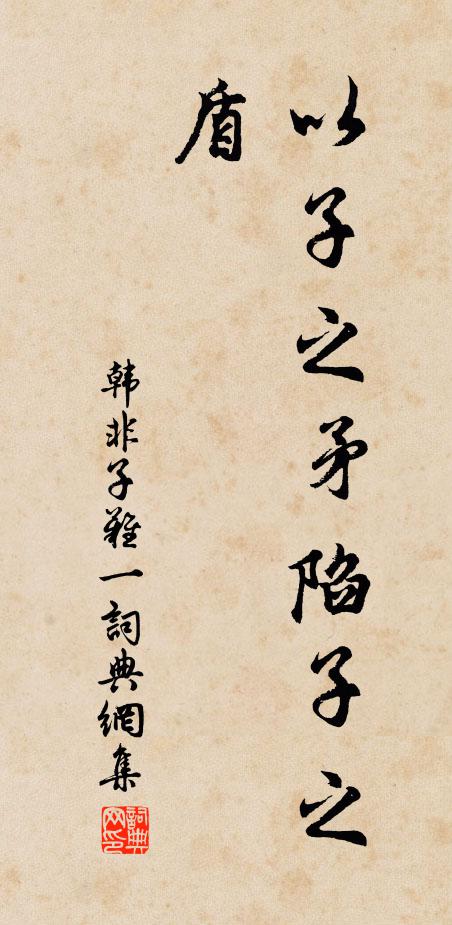 以子之矛陷子之
盾
韩非子難一詞典網集
詞典
网印